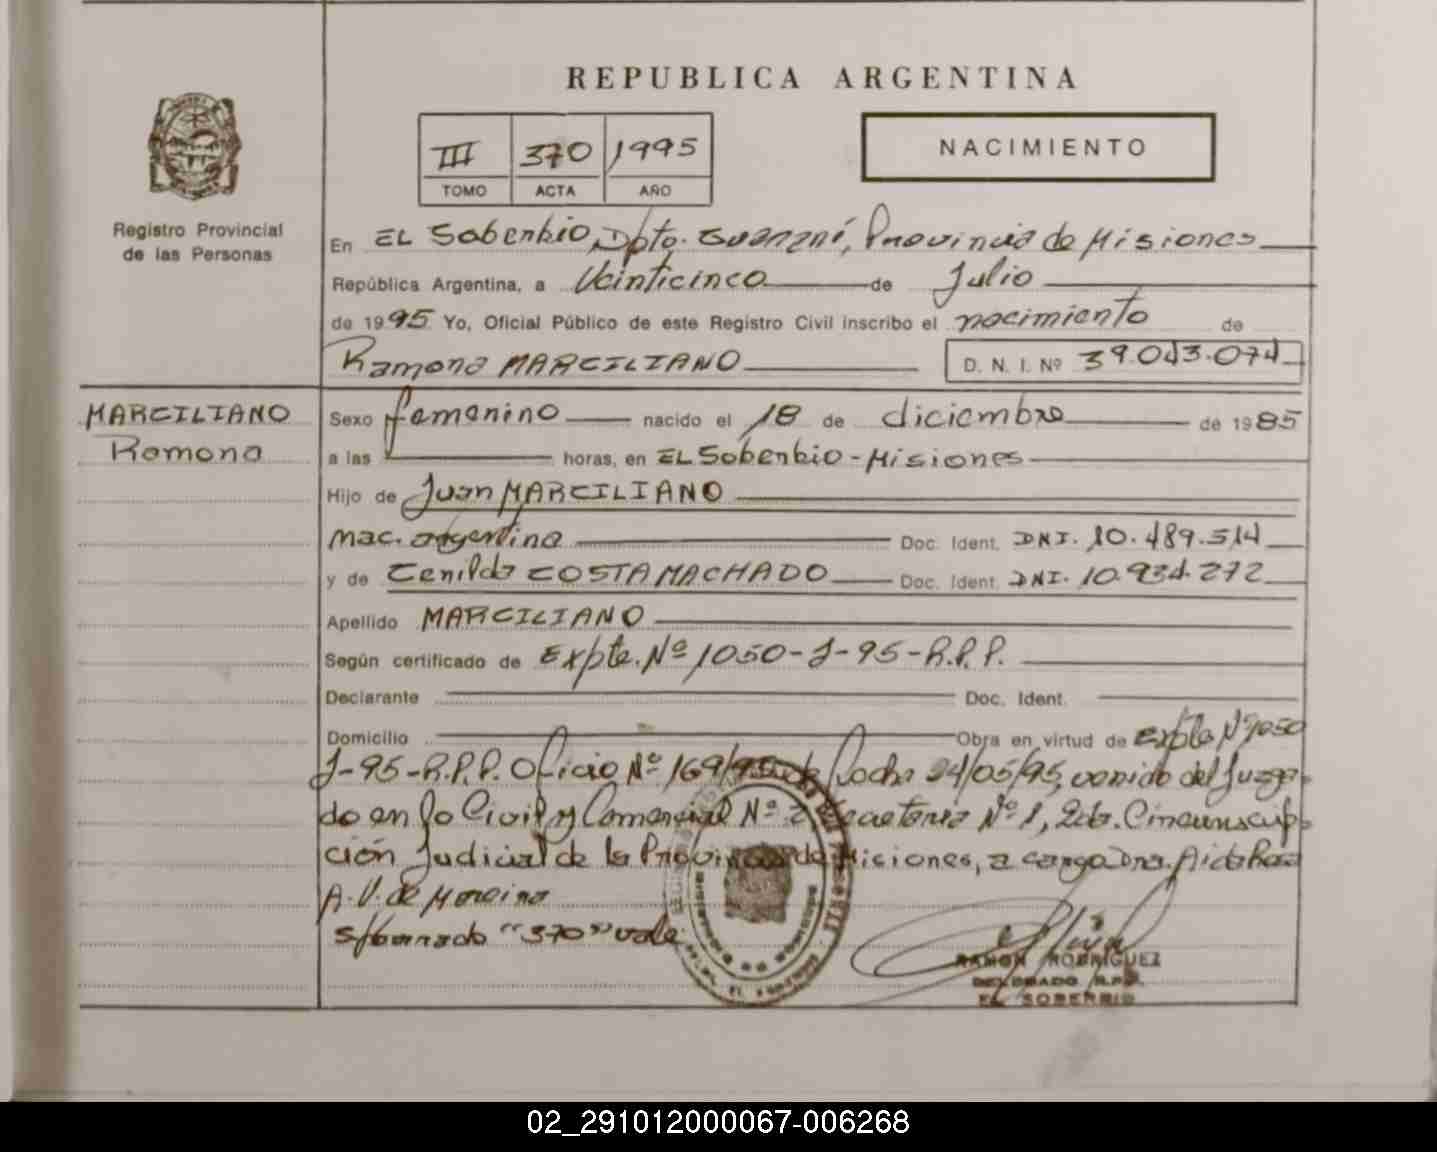 REPUBLICA ARGENTINA
III 370 1995
TOMO ACTA AÑO
NACIMIENTO
Registro Provincial
de las Personas
En EL Soberbio, Dpto. Guaraní, Provincia de Misiones
República Argentina, a Veinticinco de Julio
de 1995 Yo, Oficial Público de este Registro Civil inscribo el nacimiento de
Ramona MARCILIANO D. N. I. Nº 39.043.074
MARCILIANO
Ramona
Sexo femenino nacido el 18 de diciembre de 1985
a las horas, en EL Soberbio - Misiones
Hijo de Juan MARCILIANO
nac. argentina Doc. Ident. DNI. 10.489.514
y de COSTA MACHADO Doc. Ident. DNI. 10.934.272
Apellido MARCILIANO
Según certificado de Expte. Nº 1050-J-95-R.P.P.
Declarante Doc. Ident.
Domicilio Obra en virtud de Expte Nº 1050
J-95-R.P.P. Oficio Nº 169/95 de fecha 24/05/95, venido del Juzga-
do en lo Civil y Comercial Nº 2 Secretaria Nº 1, 2da. Circunscrip-
ción Judicial de la Provincia de Misiones, a cargo Dra. Aida Rosa
A. V. de Moreira
S/borrado "370" vale
RAMON RODRIGUEZ
DELEGADO R.P.P.
EL SOBERBIO
02_291012000067-006268